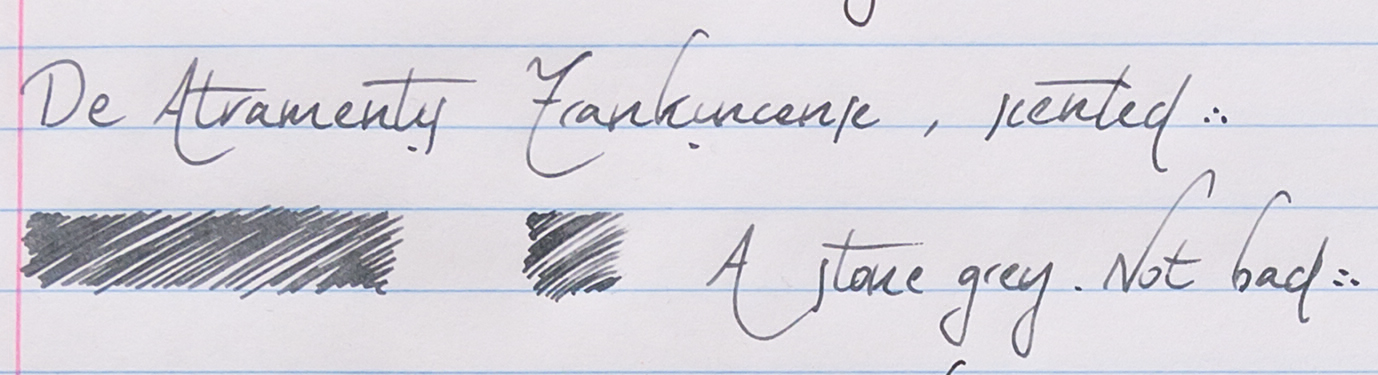 De Atramentis Frankincense, scented ::
A stone grey. Not bad ::